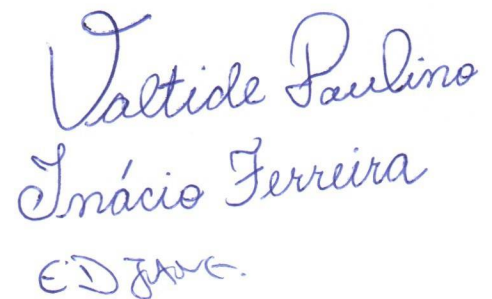 Valtide Paulino
Inácio Ferreira